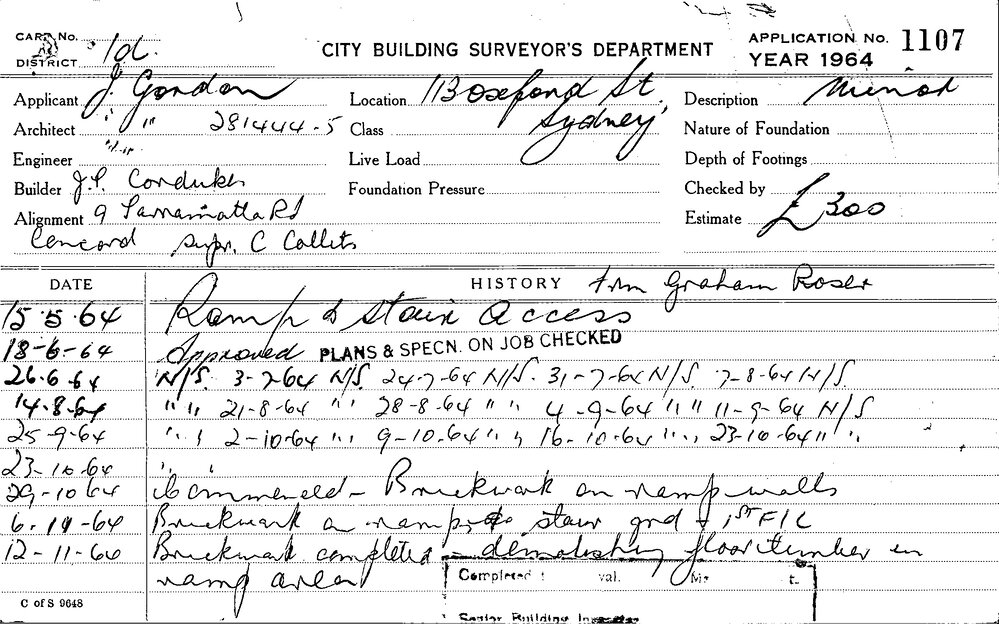 CARD No.
DISTRICT 1d.
CITY BUILDING SURVEYOR'S DEPARTMENT
APPLICATION No. 1107
YEAR 1964
Applicant J. Gordon
Location 113 Oxford St.
Sydney
Description Minor
Architect " " 281444-5
Class
Nature of Foundation
Engineer " "
Live Load
Depth of Footings
Builder J.P. Cordukes
Foundation Pressure
Checked by
Alignment 9 Parramatta Rd
Estimate £300
Concord Supr. C Collits
DATE
HISTORY frm Graham Roser
15.5.64 Ramp & Stair Access
18-6-64 Approved PLANS & SPECN. ON JOB CHECKED
26.6.64 N/S. 3-7-64 N/S. 24-7-64 N/S. 31-7-64 N/S. 7-8-64 N/S.
14.8.64 " " 21-8-64 " " 28-8-64 " " 4-9-64 " " 11-9-64 N/S
25-9-64 " " 2-10-64 " " 9-10-64 " " 16-10-64 " " 23-10-64 " "
23-10-64 " "
29-10-64 Commenced - Brickwork on ramp walls
6-11-64 Brickwork on ramp stair grd + 1st F/L
12-11-64 Brickwork completed - demolishing floor timber in
ramp area
Completed val. t.
Senior Building
C of S 9648